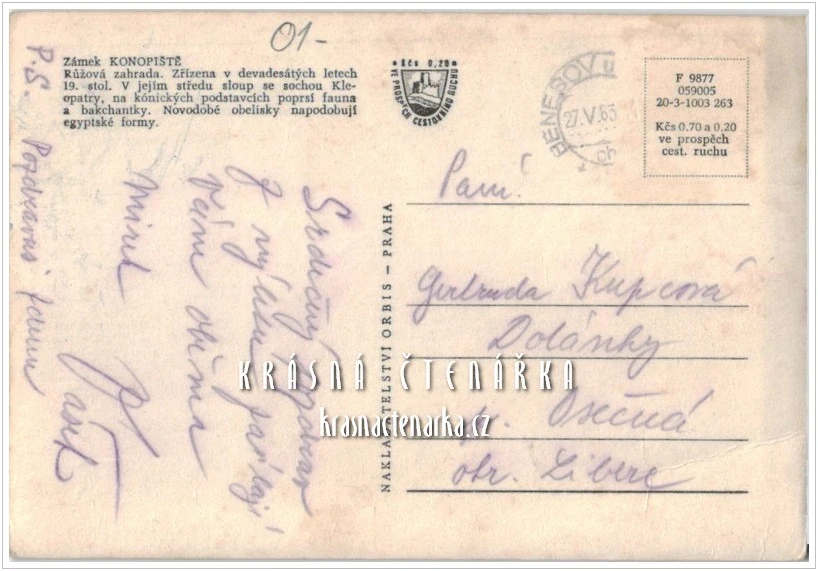 01-
Zámek KONOPIŠTĚ
Růžová zahrada. Zřízena v devadesátých letech
19. stol. V jejím středu sloup se sochou Kle-
opatry, na kónických podstavcích poprsí fauna
a bakchantky. Novodobé obelisky napodobují
egyptské formy.
Kčs 0,20
VE PROSPĚCH CESTOVNÍHO RUCHU
BENEŠOV u
27.V.65
F 9877
059005
20-3-1003 263
Kčs 0,70 a 0.20
ve prospěch
cest. ruchu
NAKLADATELSTVÍ ORBIS – PRAHA
Paní
Gertruda Kupcová
Dolánky
p. Osečná
okr. Liberec
Srdečný pozdrav
z výletu zasílají
Vám oběma
Mirek
P.S. Pozdravuj
KRÁSNÁ ČTENÁŘKA
krasnactenarka.cz